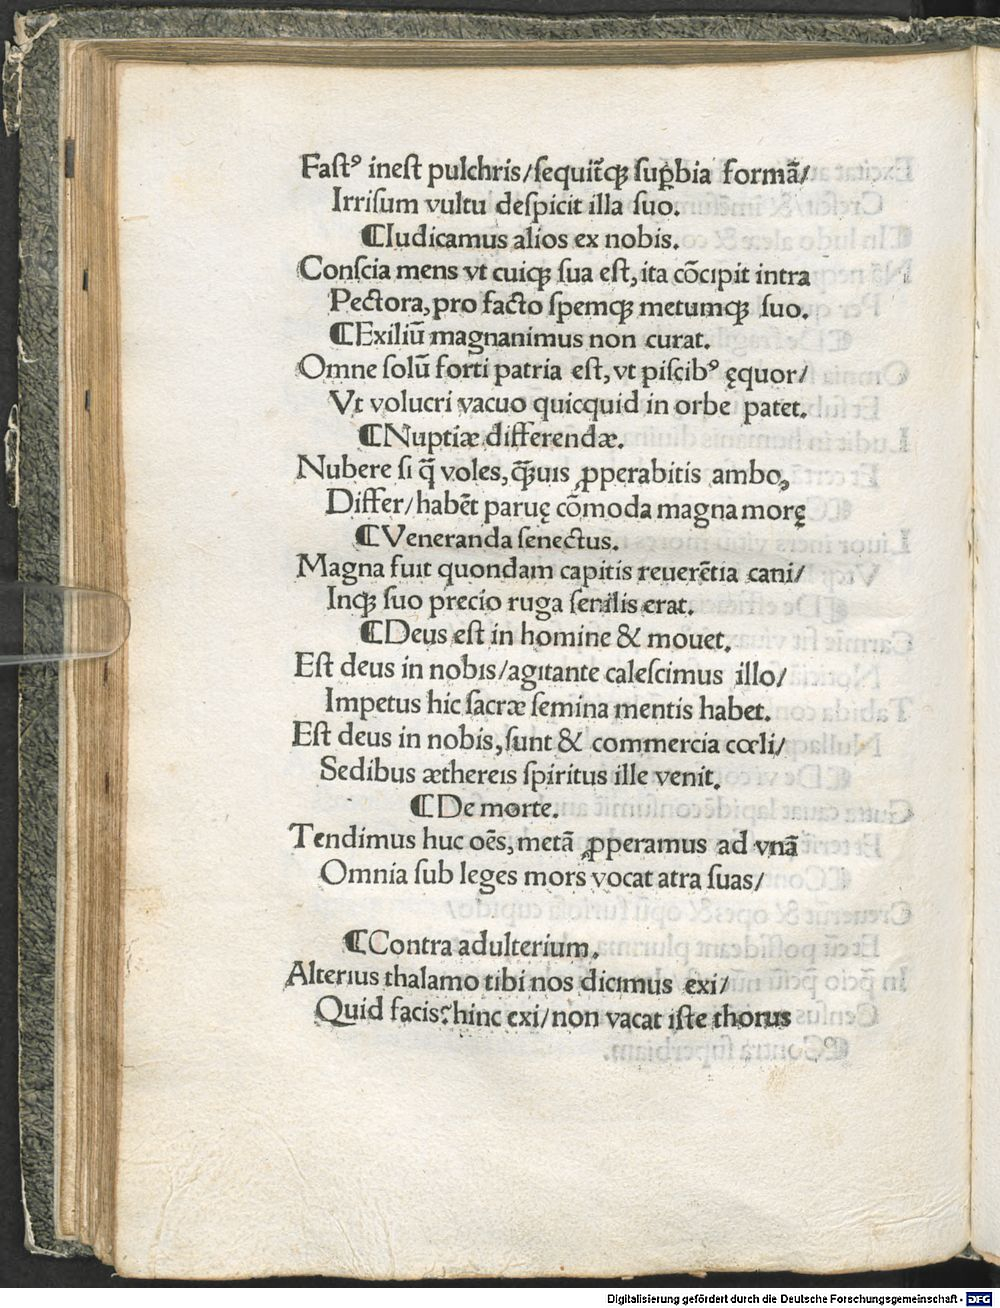 Faſtꝰ ineſt pulchris/ſequit᷑qꝫ ſuꝑbia formã/
Irriſum vultu deſpicit illa ſuo.
¶Iudicamus alios ex nobis.
Conſcia mens vt cuiqꝫ ſua eſt, ita cõcipit intra
Pectora, pro facto ſpemqꝫ metumqꝫ ſuo.
¶Exiliũ magnanimus non curat.
Omne ſolũ forti patria eſt, vt piſcibꝰ ęquor/
Vt volucri vacuo quicquid in orbe patet.
¶Nuptiæ differendæ.
Nubere ſi q̃ voles, q̃uis ꝓperabitis ambo,
Differ/habẽt paruę cõmoda magna morę
¶Veneranda ſenectus.
Magna fuit quondam capitis reuerẽtia cani/
Inqꝫ ſuo precio ruga ſenilis erat.
¶Deus eſt in homine & mouet.
Eſt deus in nobis/agitante caleſcimus illo/
Impetus hic ſacræ ſemina mentis habet.
Eſt deus in nobis, ſunt & commercia cœli/
Sedibus æthereis ſpiritus ille venit.
¶De morte.
Tendimus huc oẽs, metã ꝓperamus ad vnã
Omnia ſub leges mors vocat atra ſuas/
¶Contra adulterium.
Alterius thalamo tibi nos dicimus exi/
Quid facis? hinc exi/non vacat iſte thorus
Digitalisierung gefördert durch die Deutsche Forschungsgemeinschaft - DFG